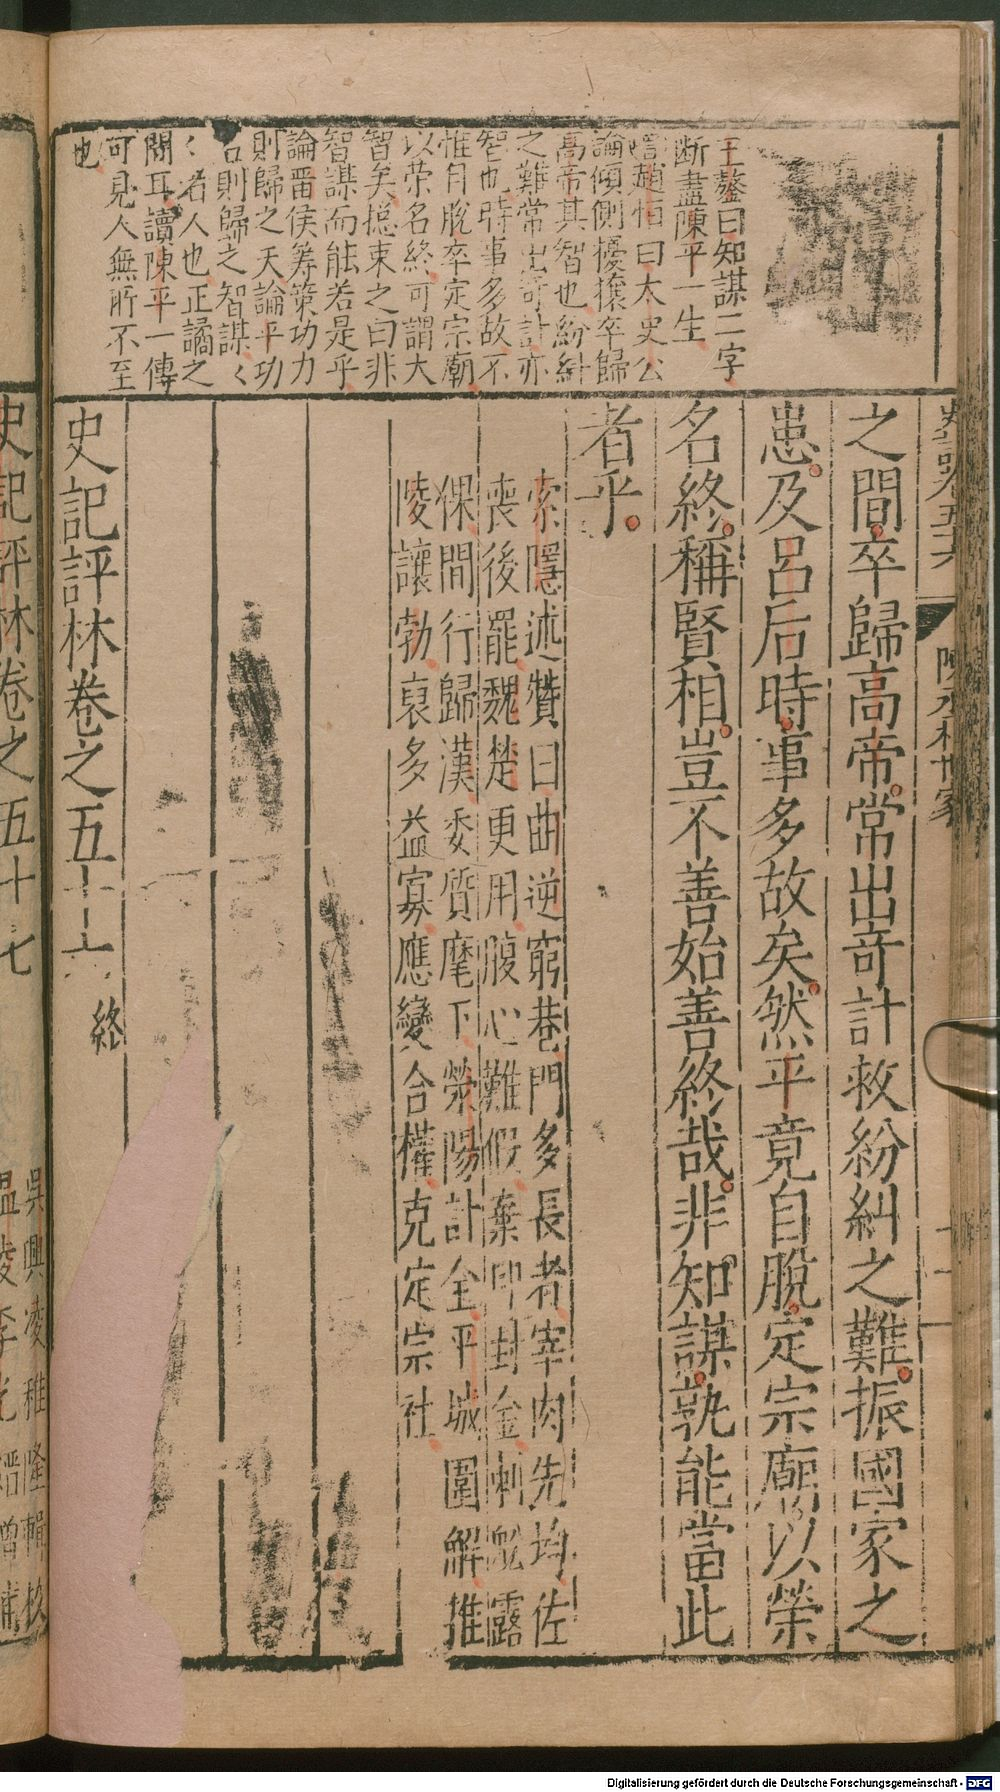 王鏊曰知謀二字
断盡陳平一生
趙恒曰太史公
論傾側擾攘卒歸
高帝其智也紛糾
之難常出奇計亦
智也時事多故不
惟自脫卒定宗廟
以荣名終可謂大
智矣揔束之曰非
智謀而能若是乎
論畱侯筹策功力
則歸之天論平功
名則歸之智謀〻
〻者人也正譎之
間耳讀陳平一傳
可見人無所不至
也
陳丞相世家
之間卒歸高帝常出奇計救紛糾之難振國家之
患及呂后時事多故矣然平竟自脫定宗廟以榮
名終稱賢相豈不善始善終哉非知謀孰能當此
者乎
索隱述贊曰曲逆窮巷門多長者宰肉先均佐
喪後罷魏楚更用腹心難假棄印封金刺舩露
倮間行歸漢委質麾下滎陽計全平城圍解推
陵讓勃裒多益寡應變合權克定宗社
史記評林卷之五十六 終
史記評林卷之五十七
吳興凌稚隆輯校
溫陵李光縉增補
Digitalisierung gefördert durch die Deutsche Forschungsgemeinschaft - DFG